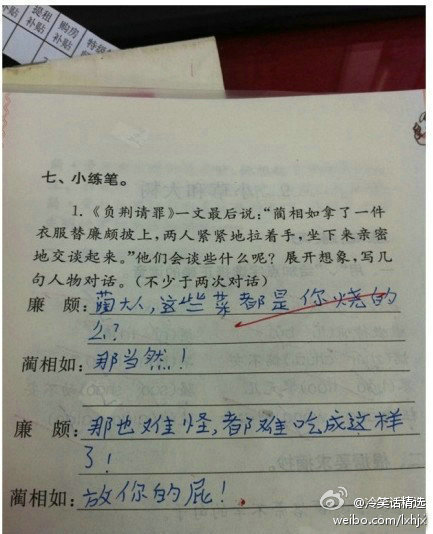 提租
补贴
购房
补贴
特级
七、小练笔。
1.《负荆请罪》一文最后说:“蔺相如拿了一件
衣服替廉颇披上,两人紧紧地拉着手,坐下来亲密
地交谈起来。”他们会谈些什么呢?展开想象,写几
句人物对话。(不少于两次对话)
廉 颇:蔺大人,这些菜都是你烧的
么?
蔺相如:那当然!
廉 颇:那也难怪,都难吃成这样
了!
蔺相如:放你的屁!
@冷笑话精选
weibo.com/lxhjx